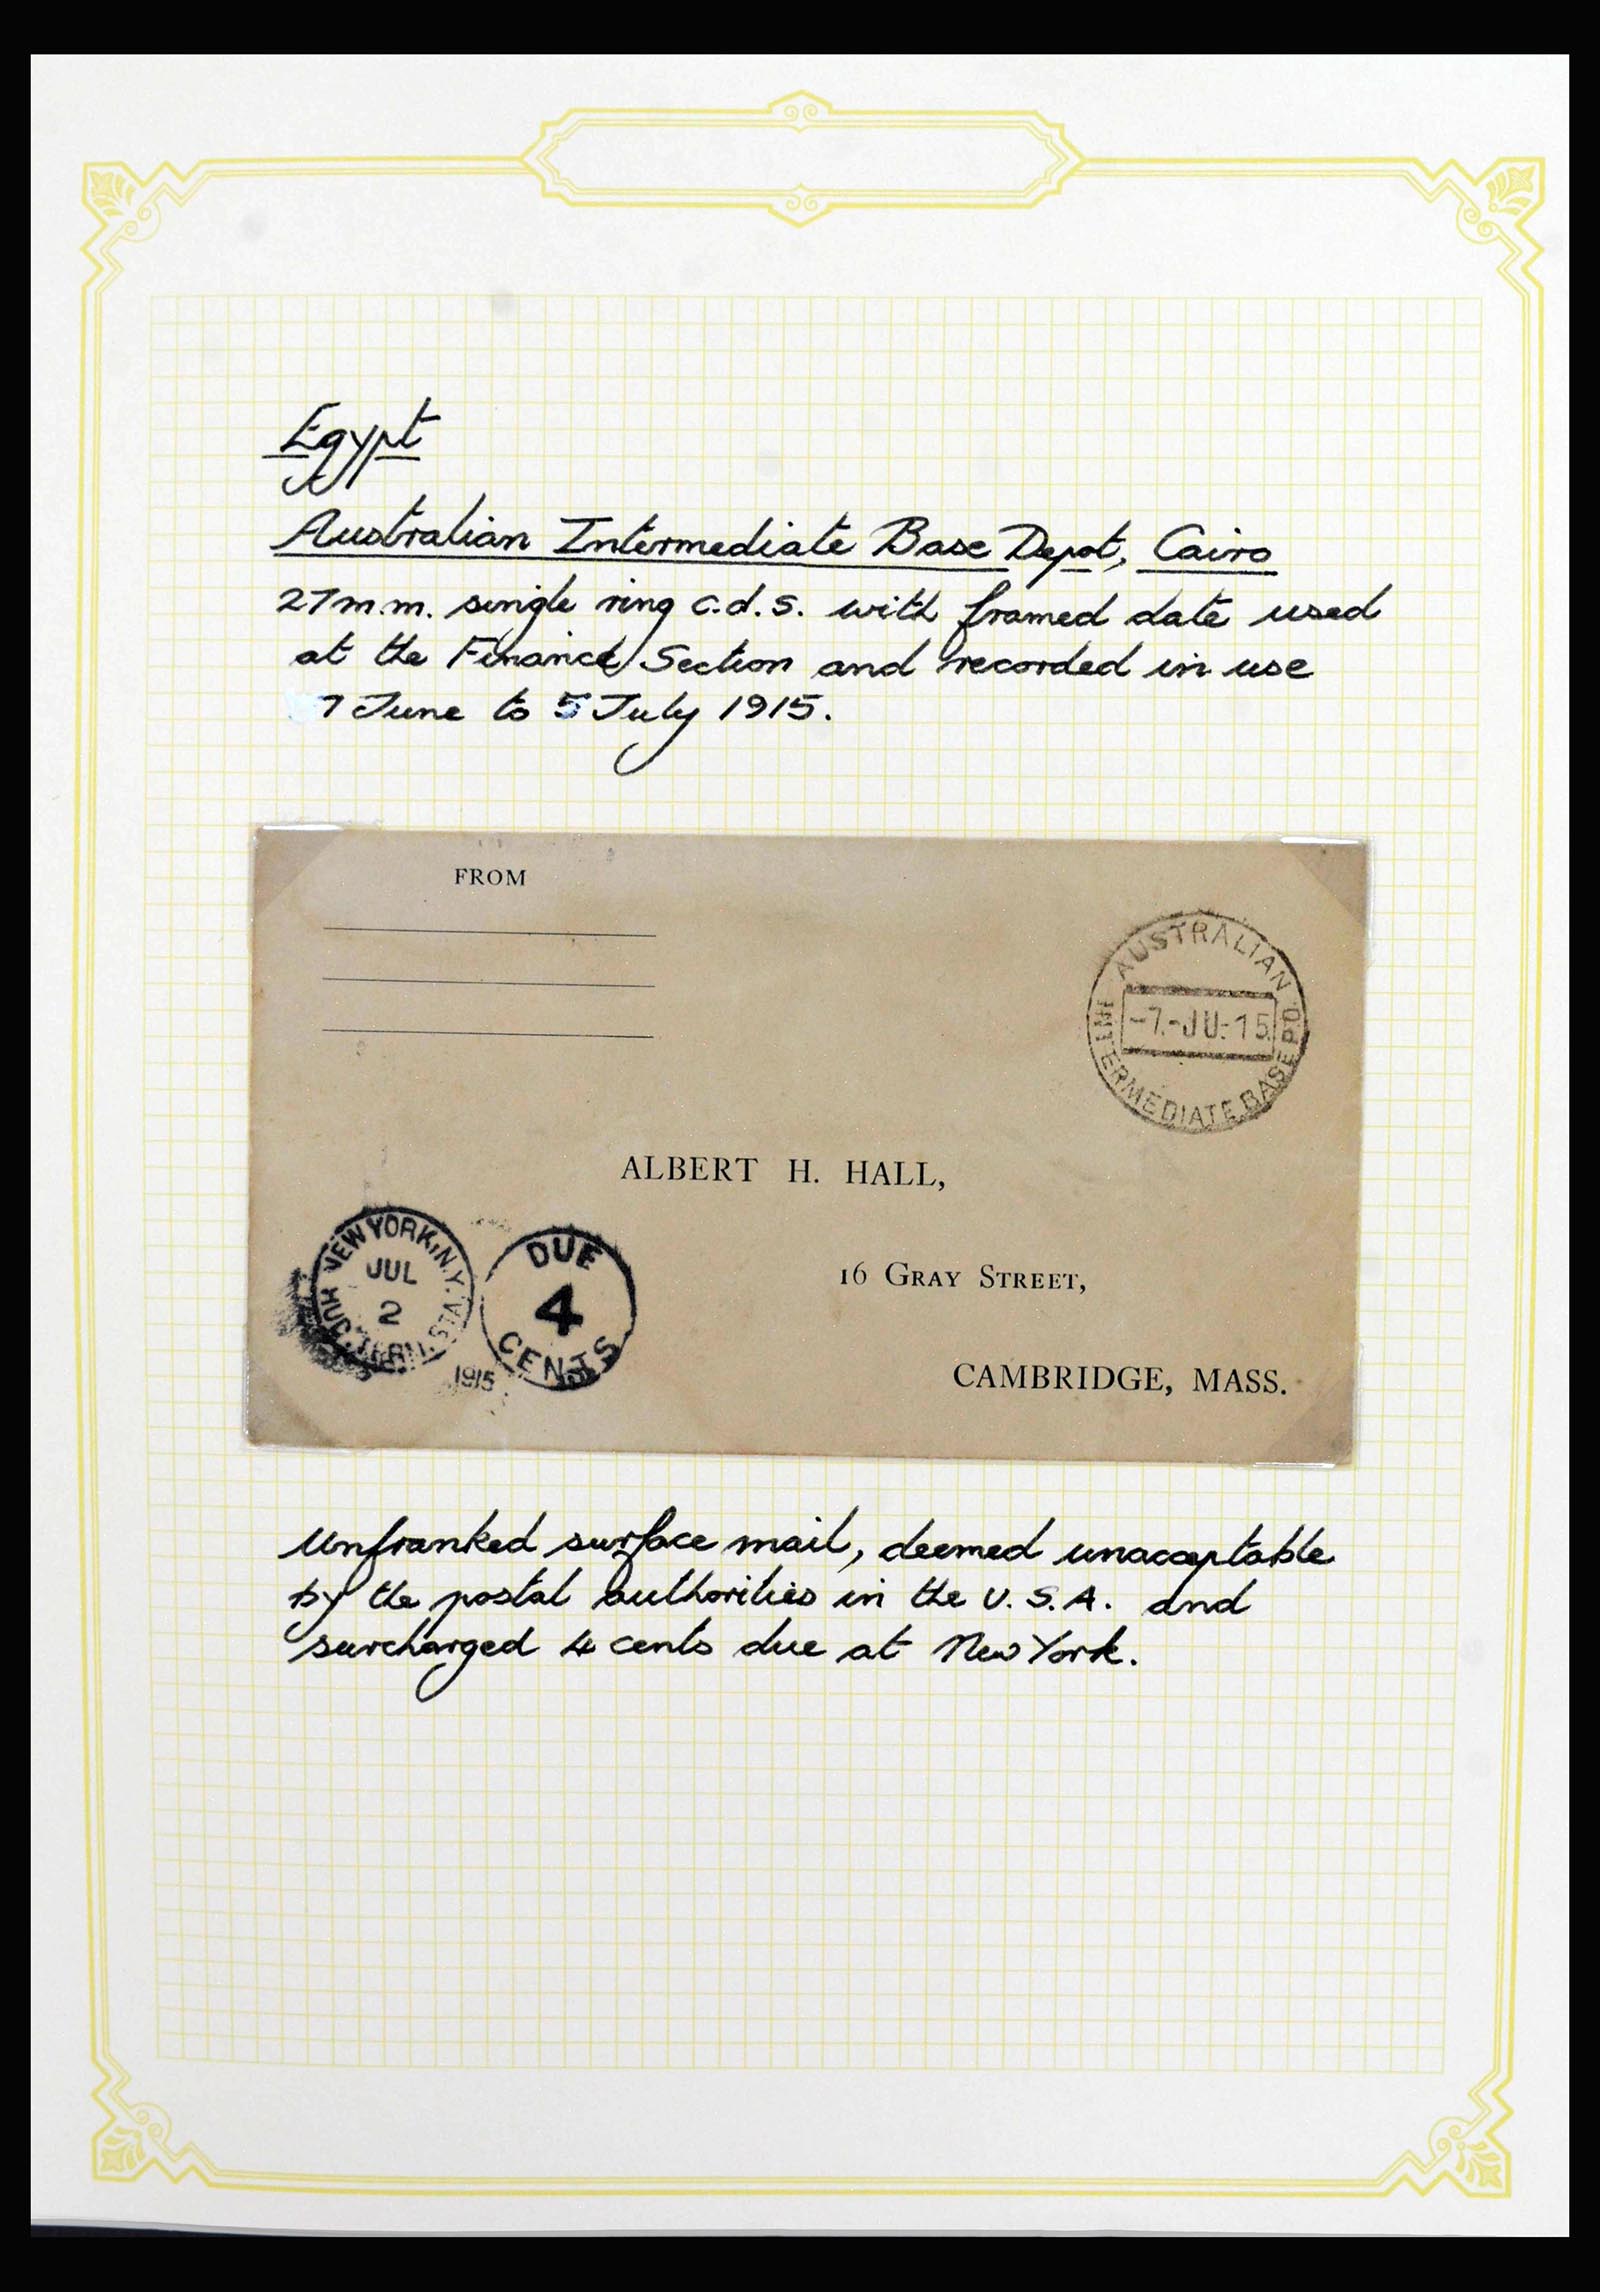 Egypt
Australian Intermediate Base Depot, Cairo
27 m.m. single ring c.d.s. with framed date used
at the Finance Section and recorded in use
7 June to 5 July 1915.
FROM
AUSTRALIAN
-7.-JU-15
INTERMEDIATE BASE P.O.
ALBERT H. HALL,
NEW YORK, N.Y.
JUL
2
STA.
1915
DUE
4
CENTS
16 GRAY STREET,
CAMBRIDGE, MASS.
Unfranked surface mail, deemed unacceptable
by the postal authorities in the U.S.A. and
surcharged 4 cents due at New York.